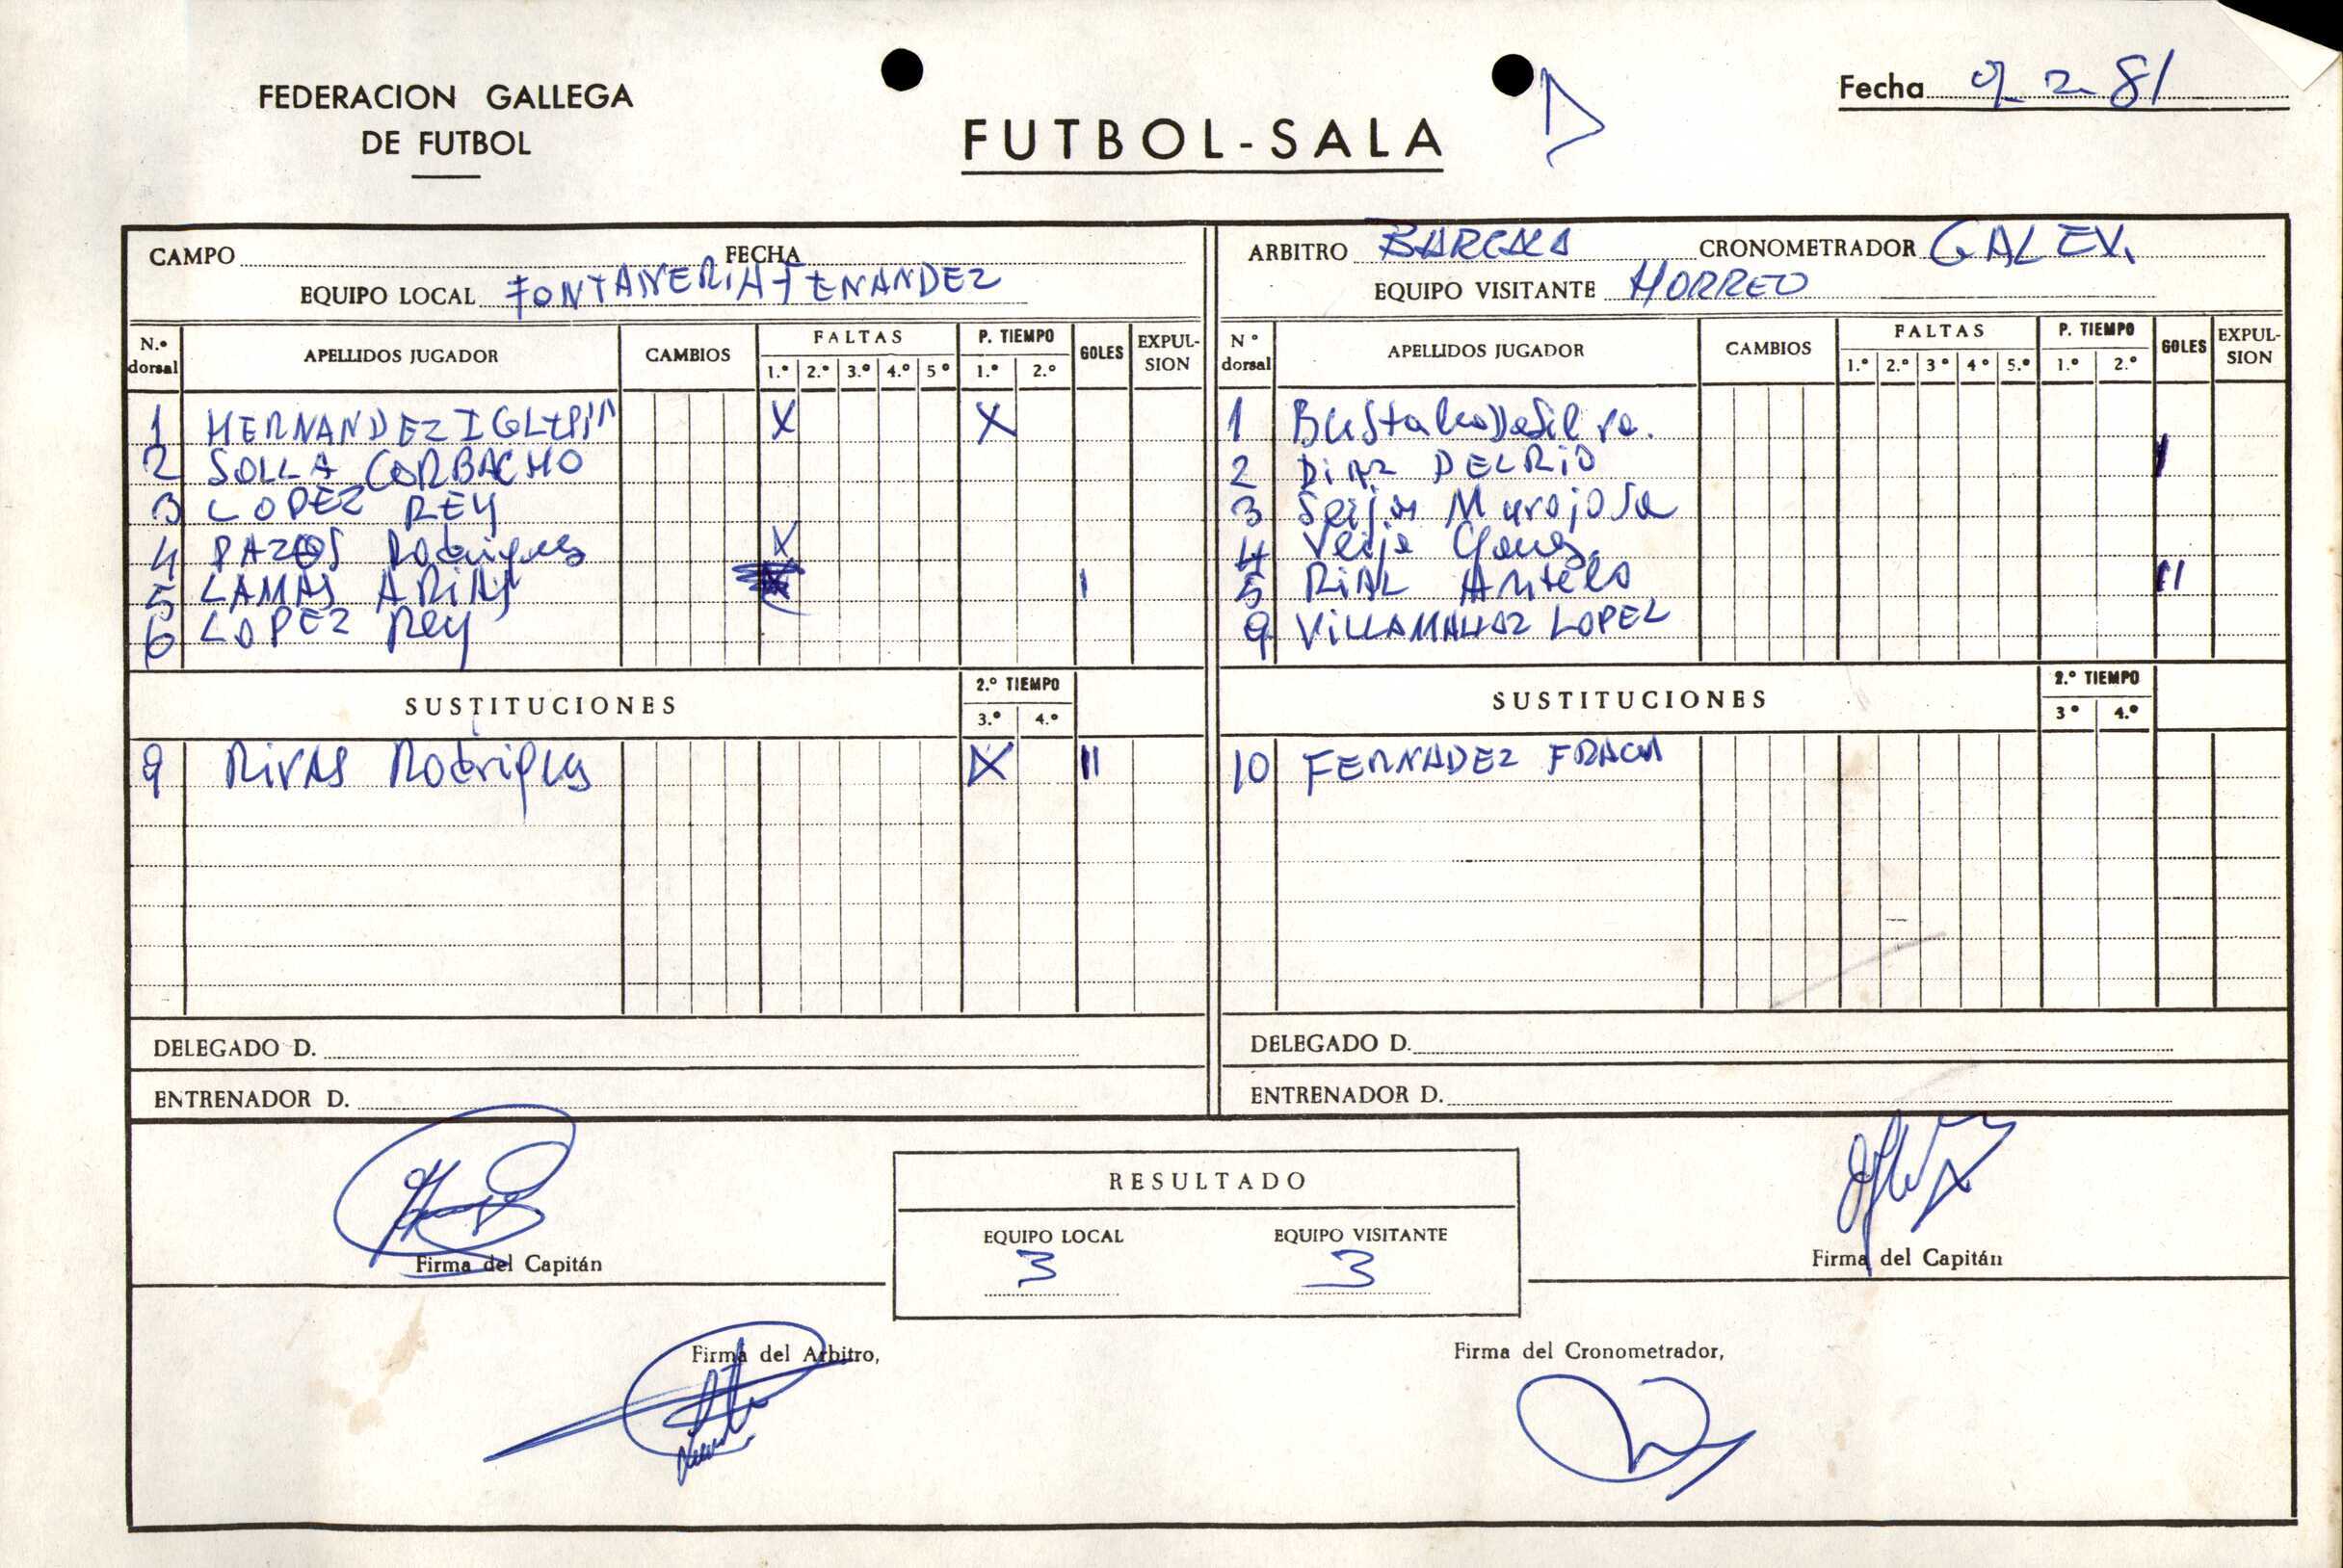 FEDERACION GALLEGA
DE FUTBOL
FUTBOL-SALA
Fecha 9-2-81
CAMPO FECHA
EQUIPO LOCAL FONTANERIA FENANDEZ
ARBITRO BARCALA CRONOMETRADOR GALEX.
EQUIPO VISITANTE HORREO
N.º dorsal APELLIDOS JUGADOR CAMBIOS FALTAS 1.º 2.º 3.º 4.º 5º P. TIEMPO 1.º 2.º GOLES EXPULSION
1 HERNANDEZ X X
2 SOLLA CORBACHO
3 LOPEZ REY
4 PAZOS Rodrigues X
5 LAMAS ARIAS I
6 LOPEZ Rey
SUSTITUCIONES 2.º TIEMPO 3.º 4.º
9 RIVAS Rodrigues X II
DELEGADO D.
ENTRENADOR D.
Nº dorsal APELLIDOS JUGADOR CAMBIOS FALTAS 1.º 2.º 3º 4º 5.º P. TIEMPO 1.º 2.º GOLES EXPULSION
1
2 DIAZ DEL RIO I
3 Seijas
4
5 RIAL Antelo II
9 LOPEZ
SUSTITUCIONES 2.º TIEMPO 3º 4.º
10 FERNADEZ
DELEGADO D.
ENTRENADOR D.
Firma del Capitán
RESULTADO
EQUIPO LOCAL EQUIPO VISITANTE
3 3
Firma del Capitán
Firma del Arbitro,
Firma del Cronometrador,